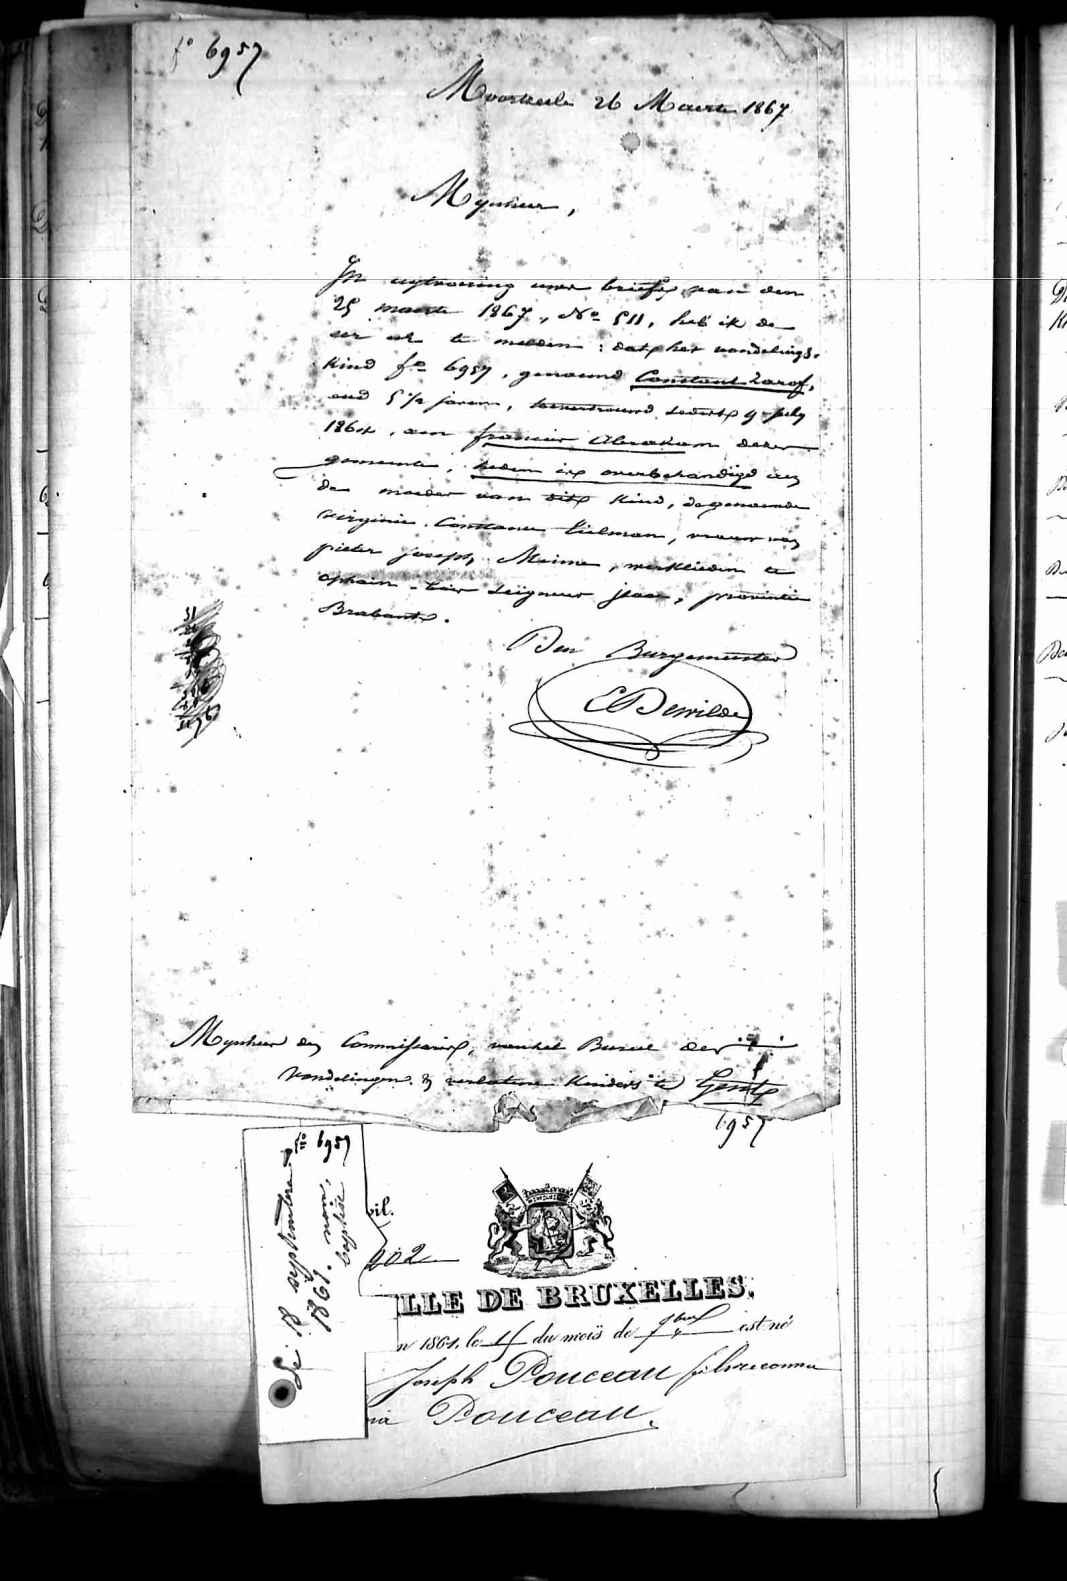 fo 6957
Moortzeele 26 Maerte 1867
Mynheer,
In uytvoering uwer briefs van den
25 maerte 1867, No 511, heb ik de
eer ul. te melden : dat het vondelings-
kind fo 6957, genaemd Constant Zarof,
oud 5 1/2 jaren, sedert 9 July
1864, aen francies Abraham dezer
gemeente, heden is overhandigd aen
de moeder van dit kind, de genaemde
virginie Constance Tielman, vrouw van
pieter joseph Moime, werklieden te
ophain-bois Seigneur jsaac, provintie
Brabant.
Den Burgemeester
E Dewilde
Mynheer den Commissaris van het Bureel der
Vondelingen & verlatene Kinders te Gent
6957
fo 6957
Le 18 septembre
1861. non
baptisé
vil.
002
LLE DE BRUXELLES.
n 1861, le 15 du mois de 7bre est né
Joseph Ponceau fils reconnu
ria Ponceau.